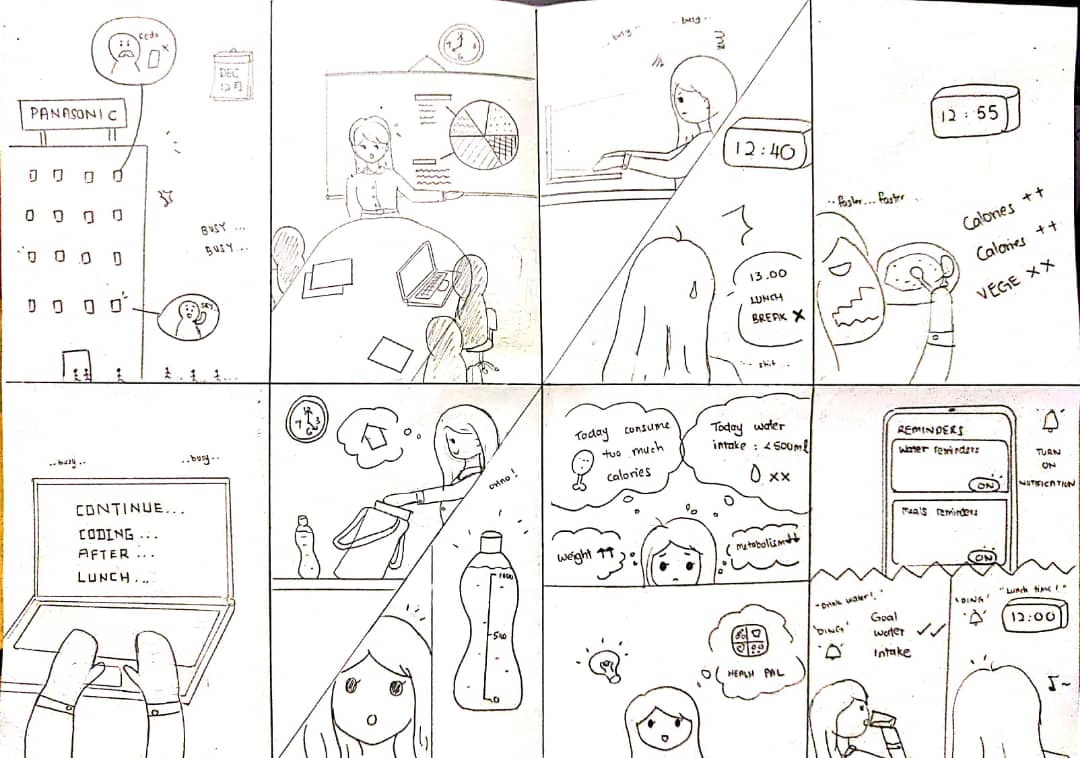 Redo
x
DEC
PANASONIC
BUSY ...
BUSY ...
SRY
..busy..
..busy..
12:40
13.00
LUNCH
BREAK X
..shit...
12:55
..faster...faster..
Calories ++
Calories ++
VEGE XX
..busy..
..busy..
CONTINUE...
CODING...
AFTER...
LUNCH...
1000
500
0
Today consume
too much
calories
Today water
intake: <500ml
XX
Weight ↑↑
metabolism ↓↓
HEALTH PAL
REMINDERS
Water reminders
ON
Meals reminders
ON
TURN
ON
NOTIFICATION
"Drink water!"
"DING"
Goal
water
intake
"DING"
"Lunch time!"
12:00